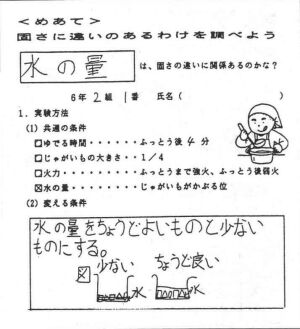 ＜めあて＞
固さに違いのあるわけを調べよう
水の量 は、固さの違いに関係あるのかな？
6年 2組 1番 氏名（ ）
1．実験方法
(1) 共通の条件
□ゆでる時間・・・・・・・ふっとう後4分
□じゃがいもの大きさ・・1／4
□火力・・・・・・・・・・ふっとうまで強火、ふっとう後弱火
☒水の量・・・・・・・・・じゃがいもがかぶる位
(2) 変える条件
水の量をちょうどよいものと少ない
ものにする。
図 少ない ちょうど良い
水 水